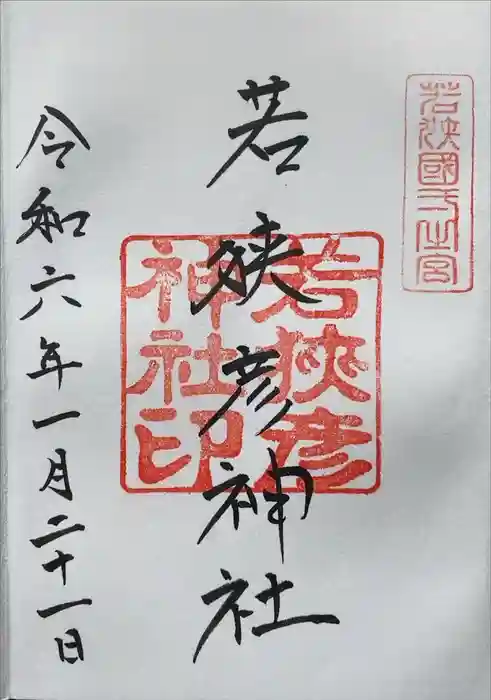 若狭國一之宮
若狭彦神社
若狭彦
神社印
令和六年一月二十一日